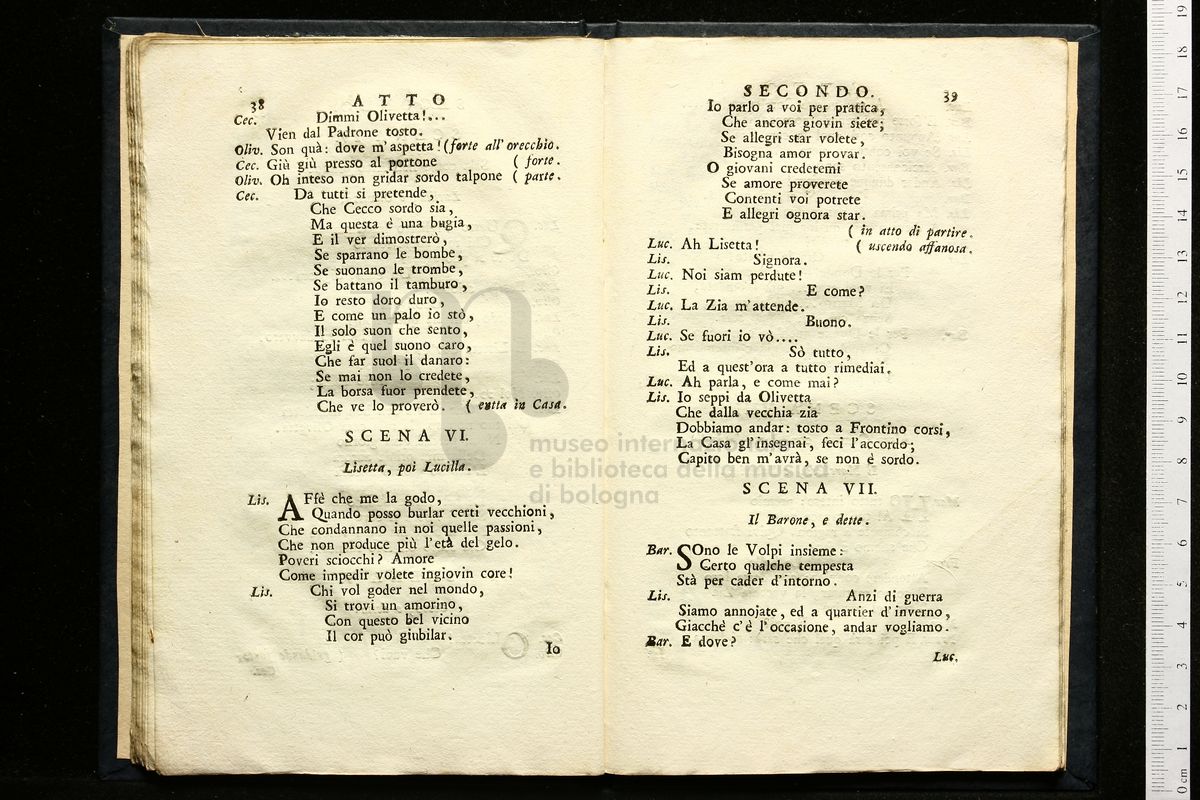 38 ATTO
Cec. Dimmi Olivetta!...
Vien dal Padrone tosto.
Oliv. Son quà: dove m'aspetta! (forte all'orecchio.
Cec. Giù giù presso al portone ( forte.
Oliv. Oh inteso non gridar sordo talpone ( parte.
Cec. Da tutti si pretende,
Che Cecco sordo sia,
Ma questa è una bugia,
E il ver dimostrerò,
Se sparrano le bombe,
Se suonano le trombe,
Se battano il tamburo,
Io resto doro duro,
E come un palo io stò,
Il solo suon che sento,
Egli è quel suono caro,
Che far suol il danaro:
Se mai non lo credete,
La borsa fuor prendete,
Che ve lo proverò. ( entta in Casa.
SCENA VI.
Lisetta, poi Lucilla.
Lis. AFfè che me la godo,
Quando posso burlar certi vecchioni,
Che condannano in noi quelle passioni,
Che non produce più l'età del gelo.
Poveri sciocchi? Amore
Come impedir volete ingiovin core!
Lis. Chi vol goder nel mondo,
Si trovi un amorino,
Con questo bel vicino
Il cor può giubilar.
Io
SECONDO. 39
Io parlo a voi per pratica,
Che ancora giovin siete;
Se allegri star volete,
Bisogna amor provar.
O giovani credetemi
Se amore proverete
Contenti voi potrete
E allegri ognora star.
( in atto di partire.
Luc. Ah Lisetta! ( uscendo affanosa.
Lis. Signora.
Luc. Noi siam perdute!
Lis. E come?
Luc. La Zia m'attende.
Lis. Buono.
Luc. Se fuori io vò....
Lis. Sò tutto,
Ed a quest'ora a tutto rimediai.
Luc. Ah parla, e come mai?
Lis. Io seppi da Olivetta
Che dalla vecchia zia
Dobbiamo andar: tosto a Frontino corsi,
La Casa gl'insegnai, feci l'accordo;
Capito ben m'avrà, se non è sordo.
SCENA VII.
Il Barone, e dette.
Bar. SOno le Volpi insieme:
Certo qualche tempesta
Stà per cader d'intorno.
Lis. Anzi di guerra
Siamo annojate, ed a quartier d'inverno,
Giacchè c'è l'occasione, andar vogliamo.
Bar. E dove?
Luc.
museo internazionale
e biblioteca della musica
di bologna
0 cm 1 2 3 4 5 6 7 8 9 10 11 12 13 14 15 16 17 18 19